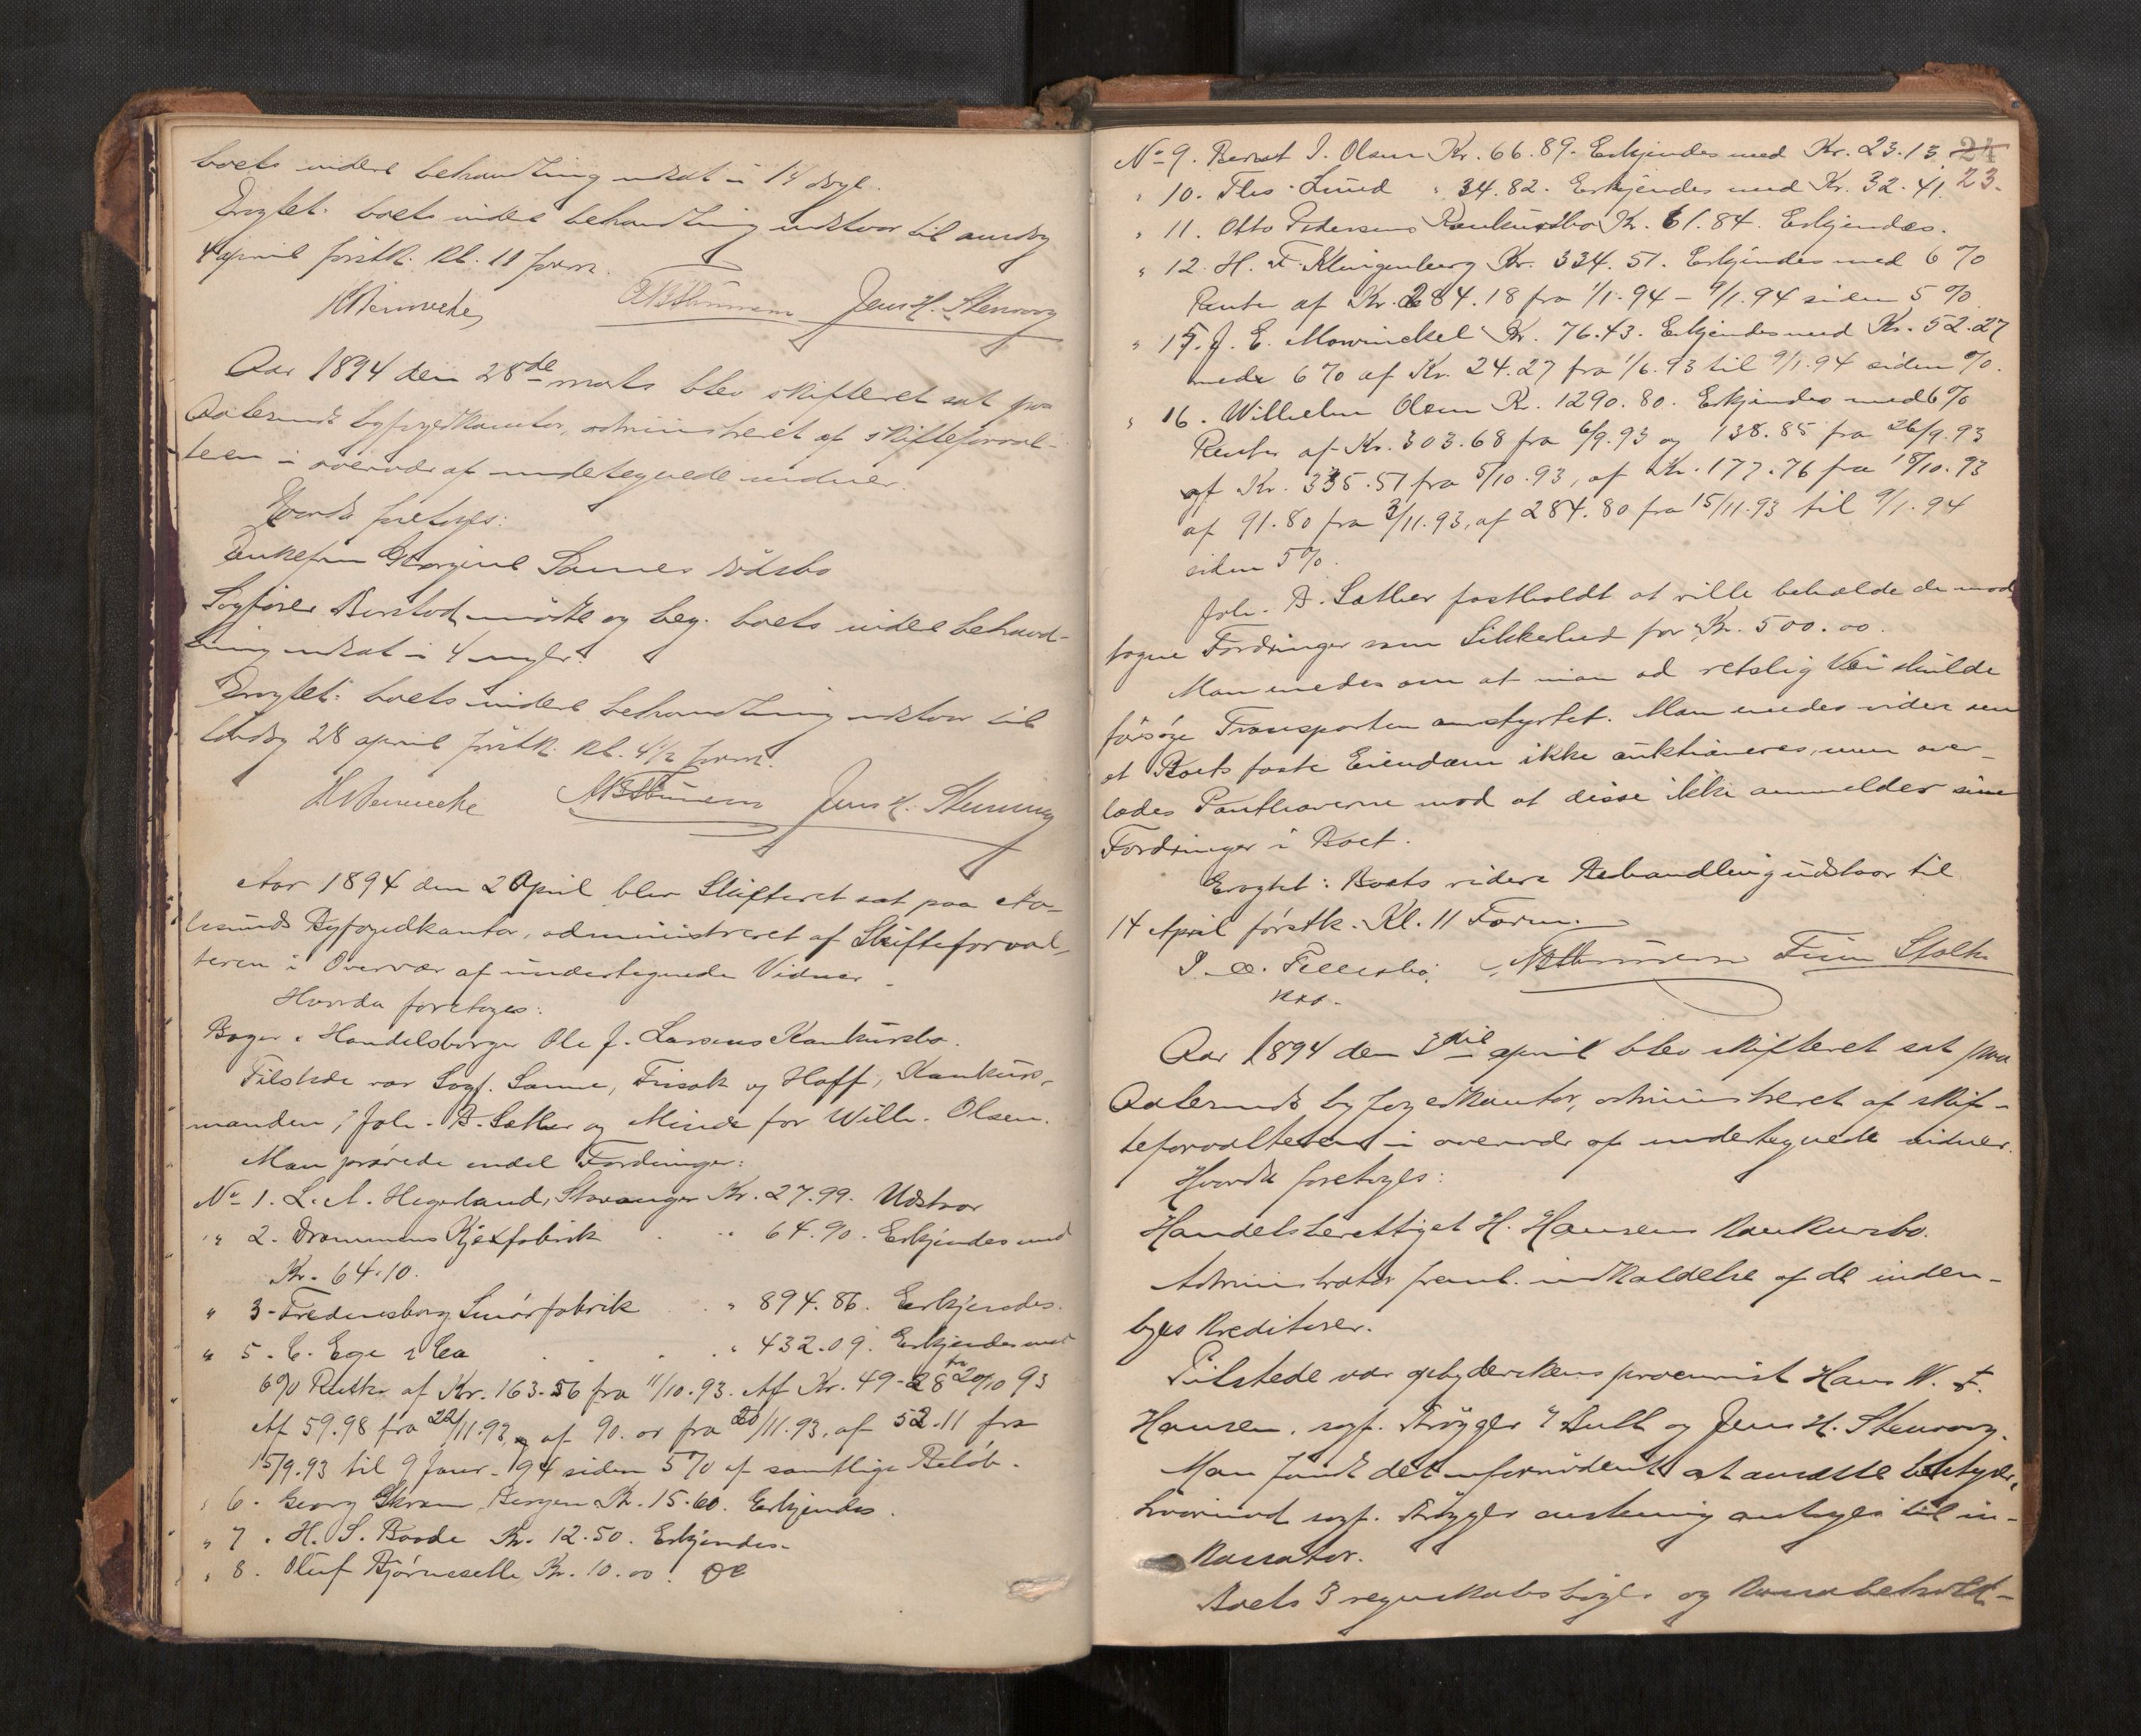 boets videre behandling udsat i 14 dage.
Eragtet: boets videre behandling udstaar til onsdag
4 april förstk. kl. 11 form.
Jens H. Stenvaag
Aar 1894 den 28de marts blev skifteret sat paa
Aalesunds byfogedkontor, administreret af skifteforval-
teren i overvær af undertegnede vidner.
Hvorda foretoges:
Enkefru Georgine Sannes dödsbo
Sagförer mötte og beg. boets videre behand-
ling udsat i 4 uger.
Eragtet: boets videre behandling udstaar til
lördag 28 april förstk. kl. 11½ form.
Jens H. Stenvaag
Aar 1894 den 2 April blev Skifteret sat paa Aa-
lesunds Byfogedkontor, administreret af Skifteforval-
teren i Overvær af undertegnede Vidner.
Hvorda foretoges:
Bager & Handelsborger Ole J. Larsens Konkursbo.
Tilstede var Sagf. Sanne, Frisak og Hoff, Konkurs-
manden, Joh. A. Sæther og Minde for Wilh. Olsen.
Man prövede endel Fordringer:
No 1. L. A. Hegerland, Stavanger Kr. 27.99. Udstaar
" 2. Drammens Kjexfabrik . " 64.90. Erkjendes med
Kr. 64.10.
" 3. Fredensborg Smörfabrik . " 894.86. Erkjendes.
" 5. C. Ege & Co . . . " 432.09. Erkjendes med
6% Renter af Kr. 163.56 fra 11/10.93. Af Kr. 49.28 fra 20/10 93
Af 59.98 fra 22/11.93, af 90.00 fra 20/11.93, af 52.11 fra
15/9.93 til 9 Janr. 94 siden 5% af samtlige Beløb.
" 6. Georg Skram, Bergen Kr. 15.60. Erkjendes.
" 7. H. S. Baade Kr. 12.50. Erkjendes.
" 8. Oluf Bjørneselle Kr. 10.00.
No 9. Bernt I. Olsen Kr. 66.89. Erkjendes med Kr. 23.13. 24
" 10. Ths. Lund " 34.82. Erkjendes med Kr. 32.41. 23.
" 11. Otto Pedersens Konkursbo Kr. 61.84. Erkjendes.
" 12. H. F. Klingenberg Kr. 334.51. Erkjendes med 6%
Renter af Kr. 284.18 fra 1/1.94 - 9/1.94 siden 5%.
" 15. J. E. Mowinckel Kr. 76.43. Erkjendes med Kr. 52.27
med 6% af Kr. 24.27 fra 1/6.93 til 9/1.94 siden %.
" 16. Wilhelm Olsen Kr. 1290.80. Erkjendes med 6%
Renter af Kr. 303.68 fra 6/9.93 og 138.85 fra 26/9.93
af Kr. 335.51 fra 5/10.93, af Kr. 177.76 fra 18/10.93
af 91.80 fra 3/11.93, af 284.80 fra 15/11.93 til 9/1.94
siden 5%.
Joh. A. Sæther fastholdt at ville beholde de mod
tagne Fordringer som Sikkerhed for Kr. 500.00.
Man enedes om at man ad retslig Vei skulde
försøge Transporten omstyrtet. Man enedes videre om
at Boets faste Eiendom ikke auktioneres, men over-
lades Panthaverne mod at disse ikke anmelder sine
Fordringer i Boet.
Eragtet: Boets videre Behandling udstaar til
14 April förstk. Kl. 11 Form.
Finn
Aar 1894 den 3die april blev skifteret sat paa
Aalesunds byfogedkontor, administreret af skif-
teforvalteren i overvær af undertegnede vidner.
Hvorda foretoges:
Handelsberettiget H. Hansens konkursbo.
Administrator freml. indkaldelse af de inden-
byes kreditorer.
Tilstede var gjbyderskens procurist Hans W. F.
Hansen, sagf. Brøgger & Bull og Jens H. Stenvaag.
Man fandt det ufornödent at ansætte bestyrer,
hvorimod sagf. Brøgger ansteining antoges til in-
kassator.
Boets 3 regnskabsböger og kassabehold-